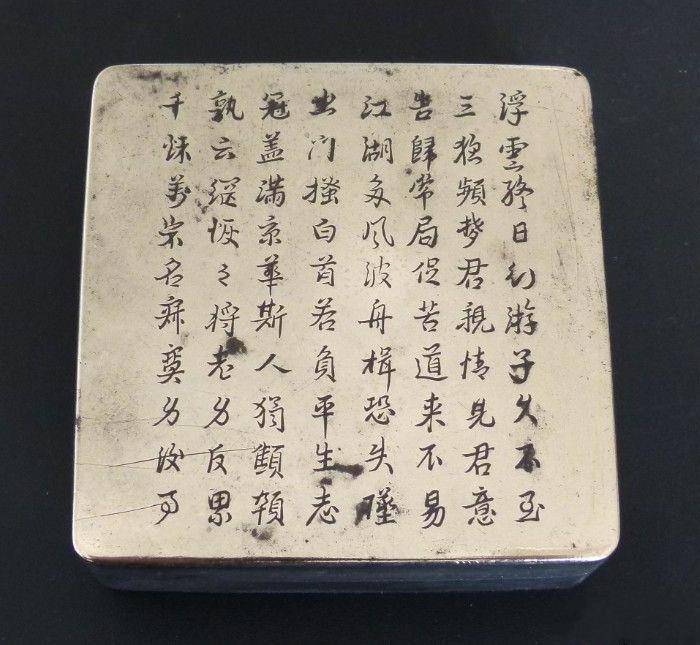 浮雲終日行游子久不至
三夜頻梦君親情見君意
告歸常局促苦道来不易
江湖多風波舟楫恐失墜
出門搔白首若負平生志
冠盖滿京華斯人獨顦顇
孰云網恢々將老身反累
千秋萬歲名寂寞身後事